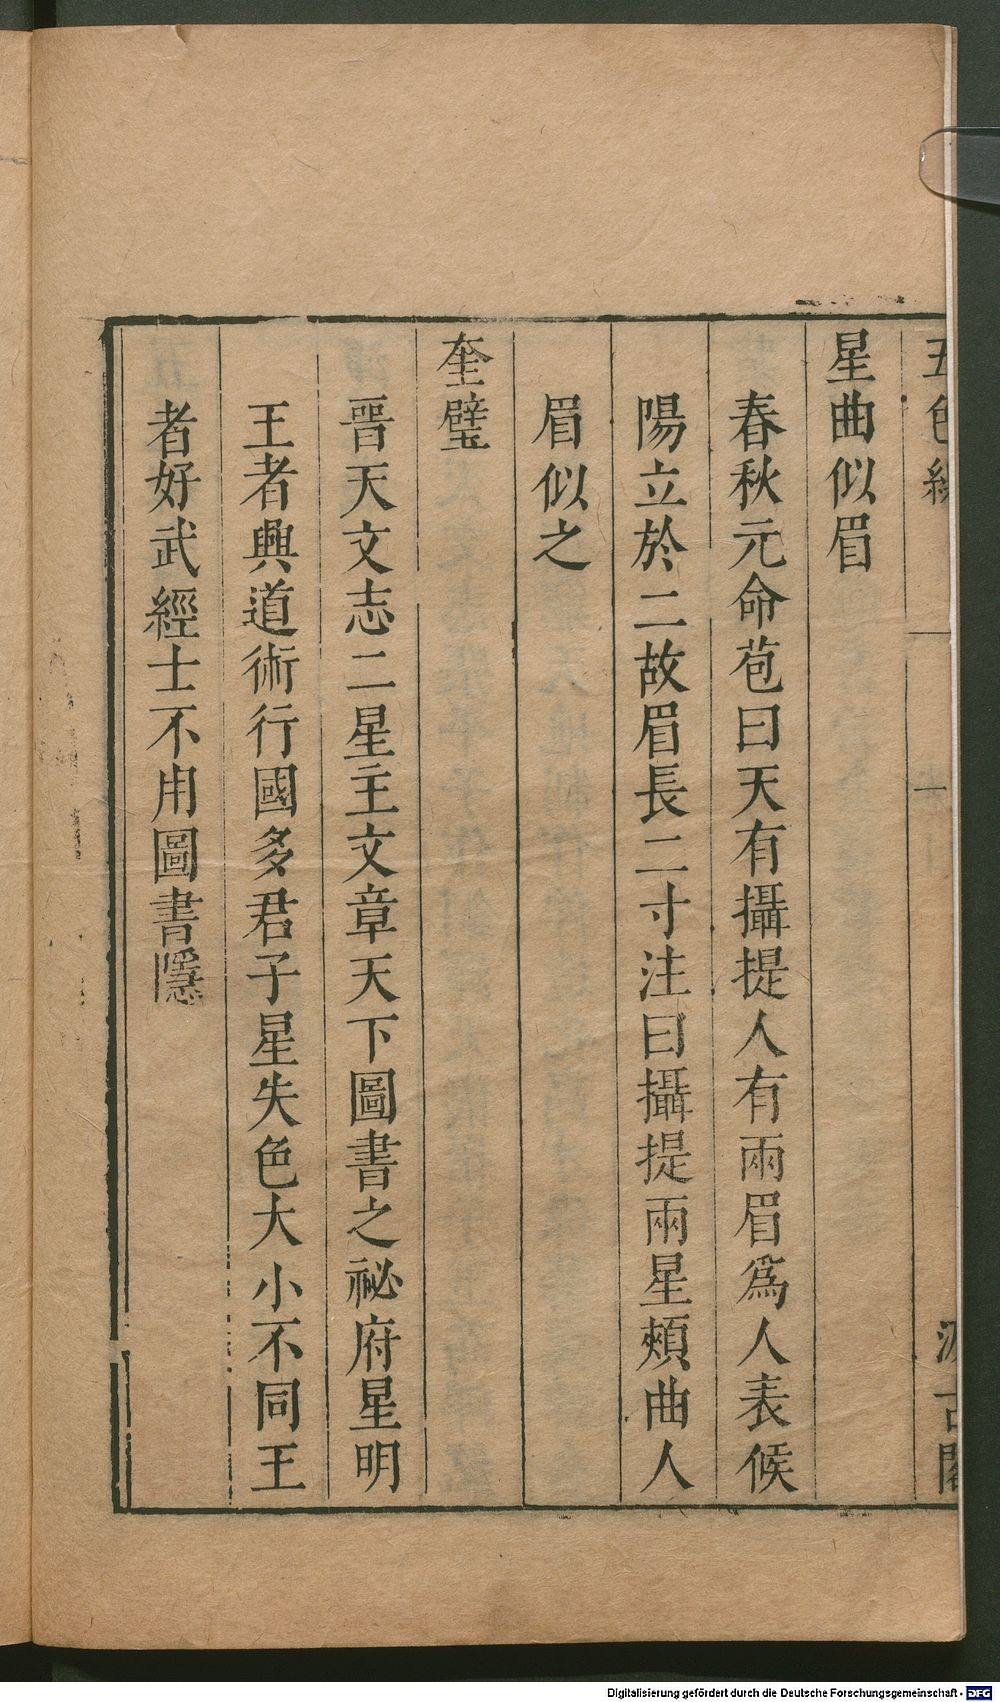 五色線
汲古閣
星曲似眉
春秋元命苞曰天有攝提人有兩眉為人表候
陽立於二故眉長二寸注曰攝提兩星頰曲人
眉似之
奎壁
晉天文志二星主文章天下圖書之祕府星明
王者興道術行國多君子星失色大小不同王
者好武經士不用圖書隱
Digitalisierung gefördert durch die Deutsche Forschungsgemeinschaft - DFG